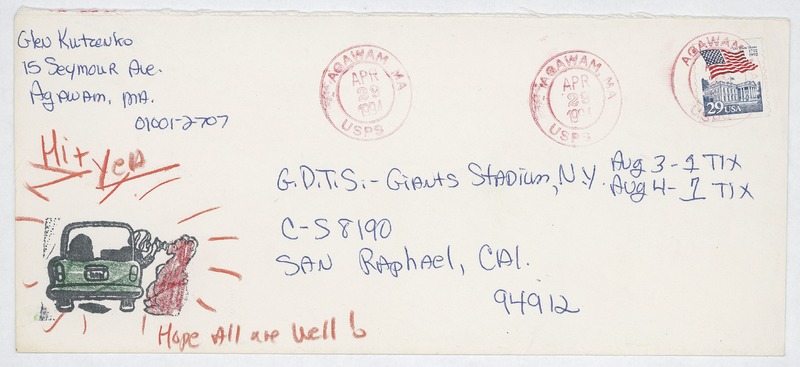 Glen Kutzenko
15 Seymour Ave.
Agawam, MA.
01001-2707
AGAWAM, MA
APR
29
1994
USPS
AGAWAM, MA
APR
29
199
USPS
AGAWAM
29 USA
Hit
G.D.T.S. - Giants Stadium, N.Y. Aug 3 - 1 TIX
Aug 4 - 1 TIX
C-S 8190
SAN Raphael, CAl.
94912
Hope All are Well